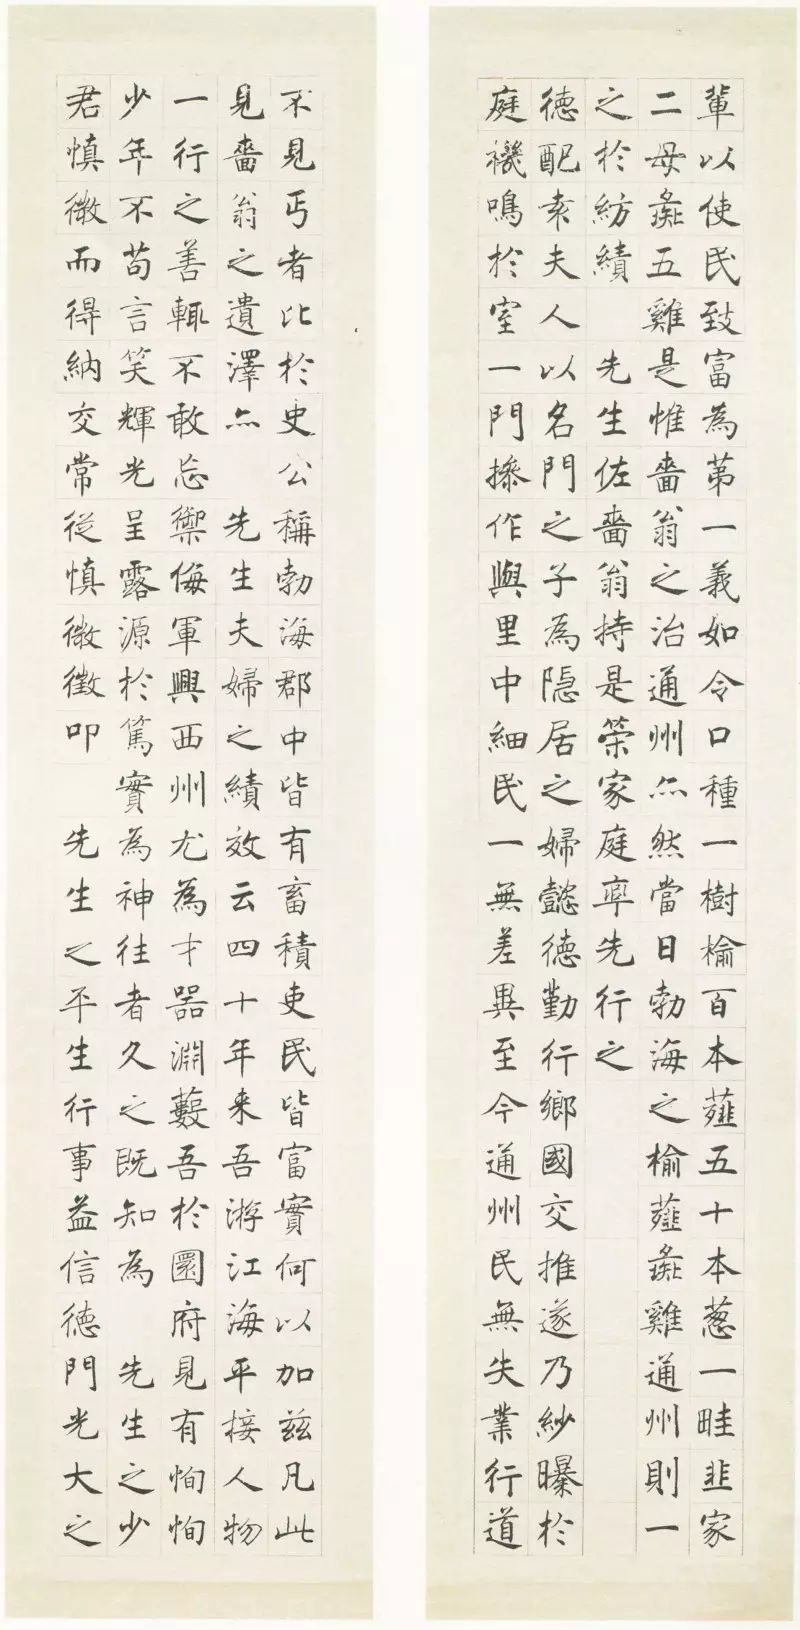 輩以使民致富為第一義如令口種一樹榆百本薤五十本葱一畦韭家
二母彘五雞是惟嗇翁之治通州亦然當日勃海之榆薤彘雞通州則一
之於紡績先生佐嗇翁持是榮家庭率先行之
德配袁夫人以名門之子為隱居之婦懿德勤行鄉國交推遂乃紗曝於
庭禨鳴於室一門操作與里中細民一無差異至今通州民無失業行道
不見丐者比於史公稱勃海郡中皆有畜積吏民皆富實何以加茲凡此
見嗇翁之遺澤亦先生夫婦之績效云四十年来吾游江海平接人物
一行之善輒不敢忘禦侮軍興西州尤為才器淵藪吾於圜府見有恂恂
少年不苟言笑輝光呈露源於篤實為神往者久之既知為先生之少
君慎微而得納交常從慎微徵叩先生之平生行事益信德門光大之